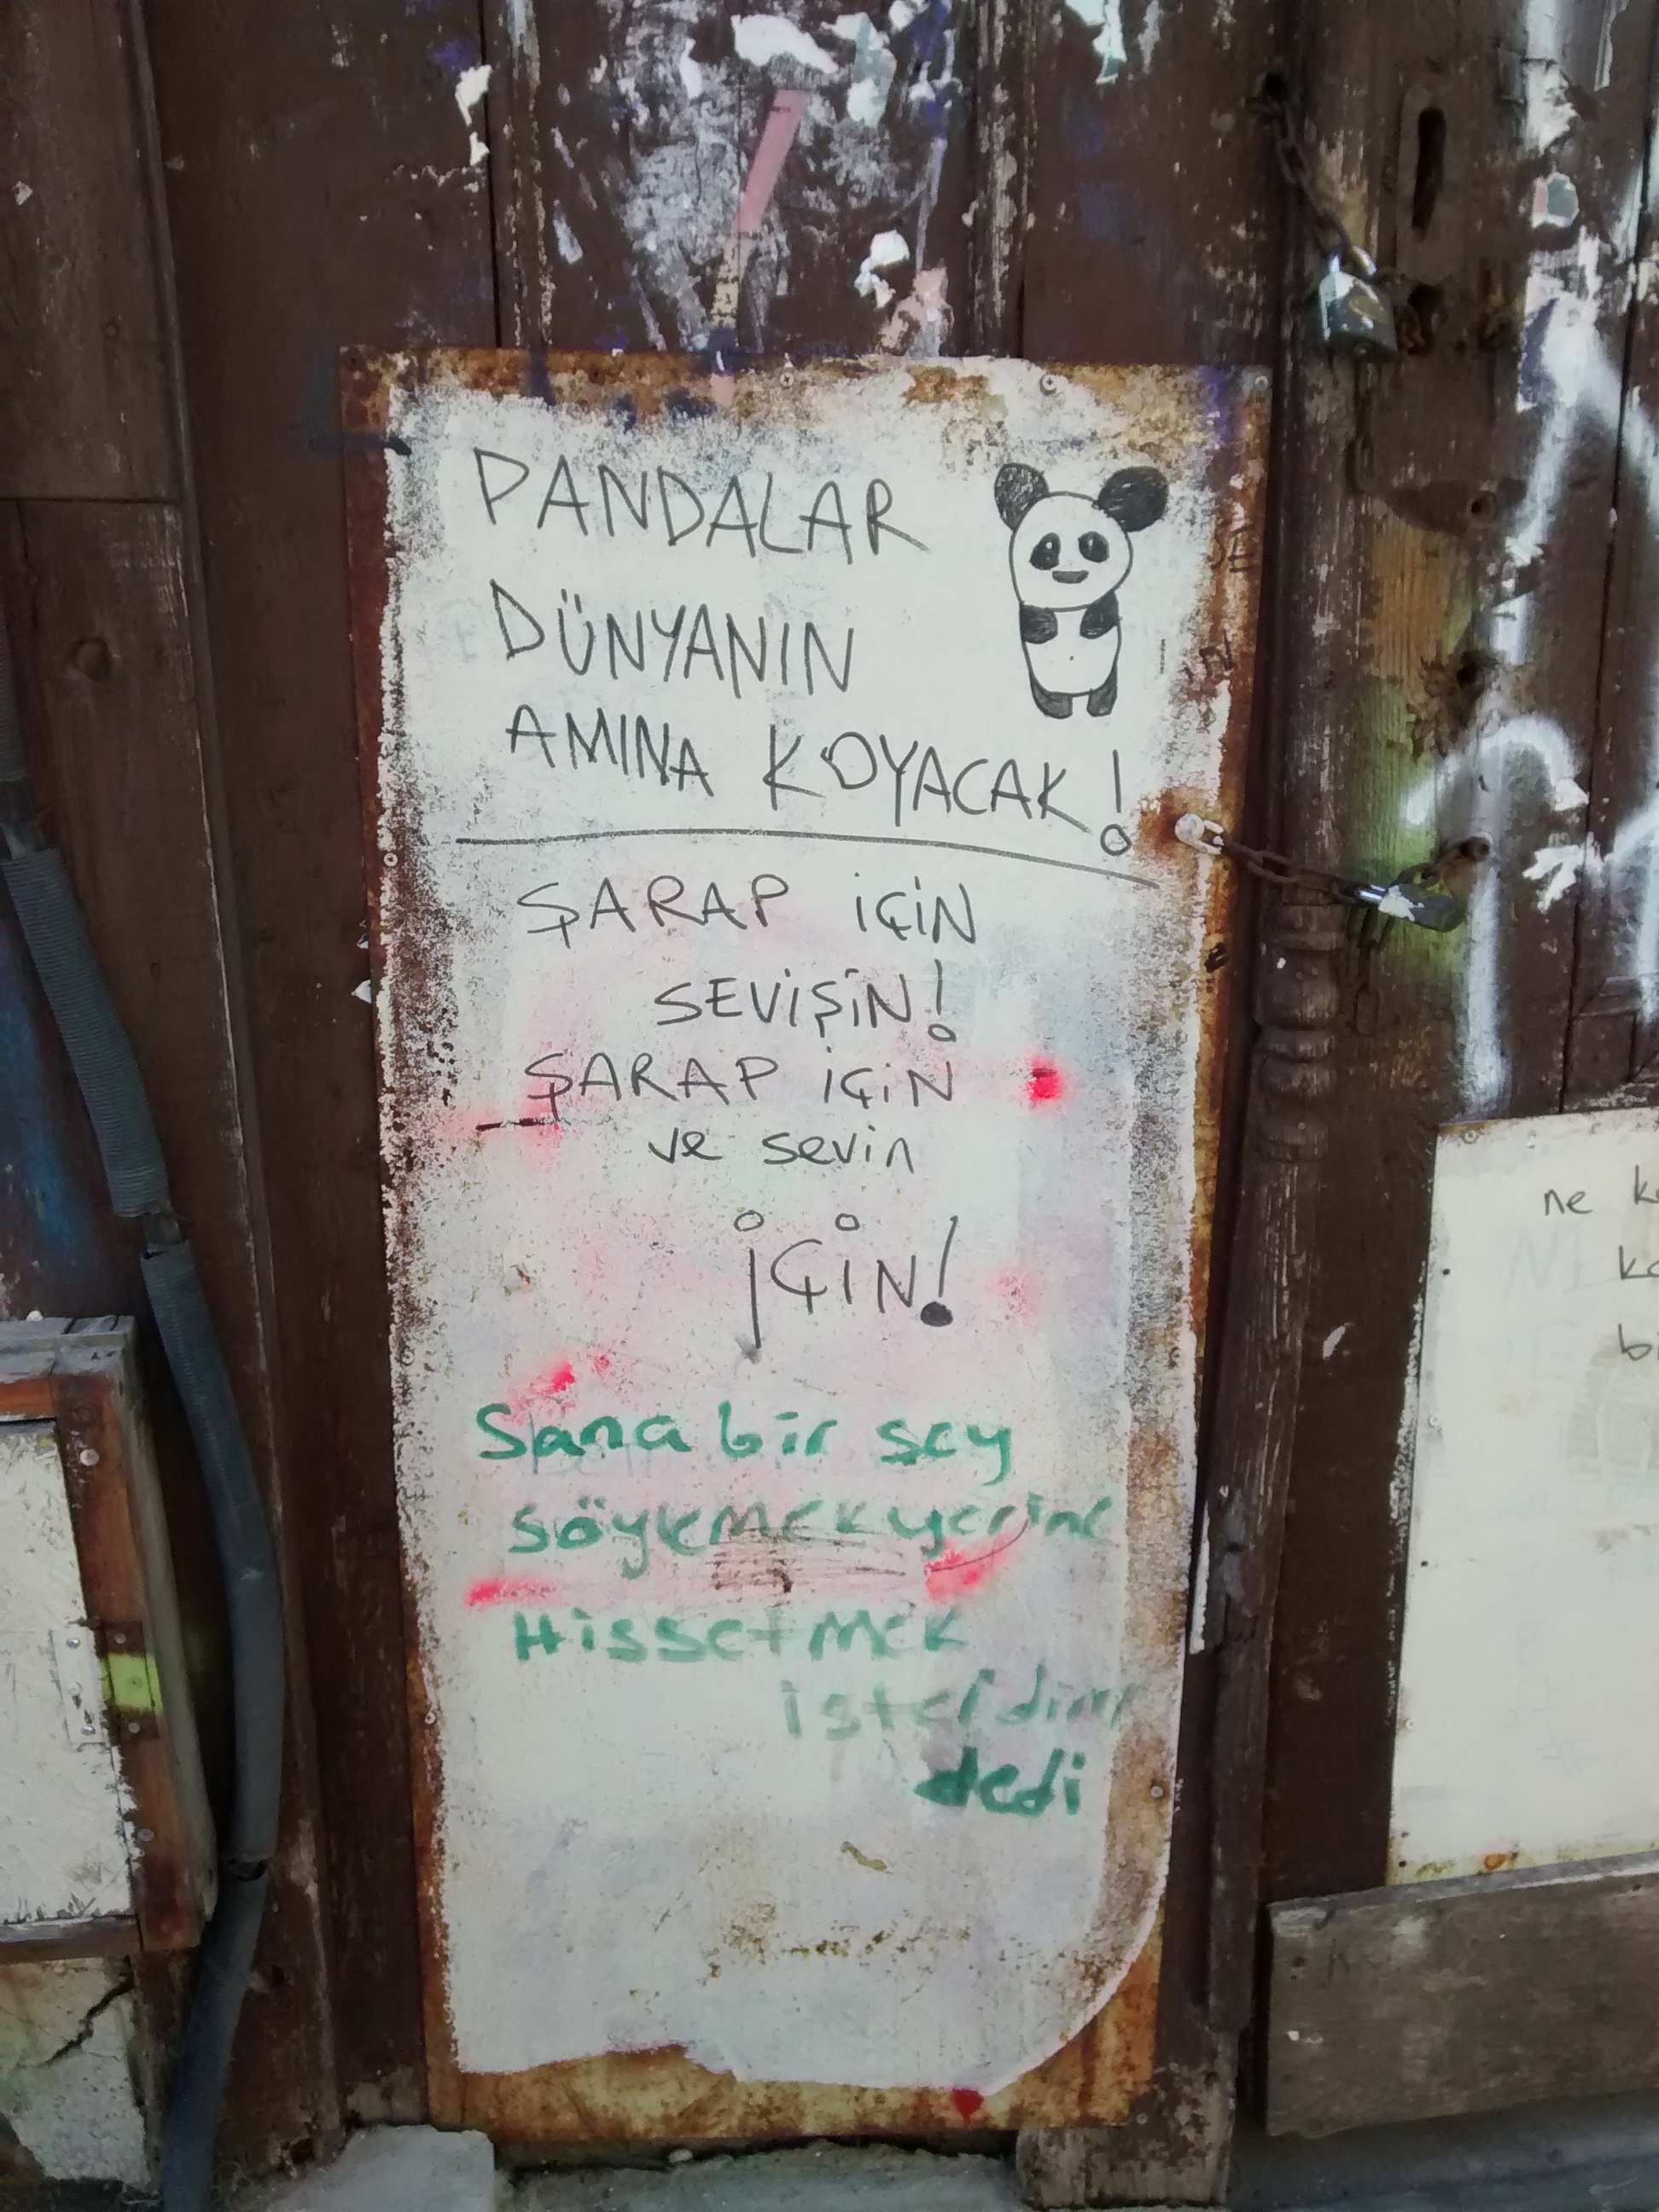 PANDALAR
DÜNYANIN
AMINA KOYACAK!
ŞARAP İÇİN
SEVİŞİN!
ŞARAP İÇİN
ve sevin
İÇİN!
Sana bir şey
söylemek yerine
Hissetmek
isterdim
dedi
ne